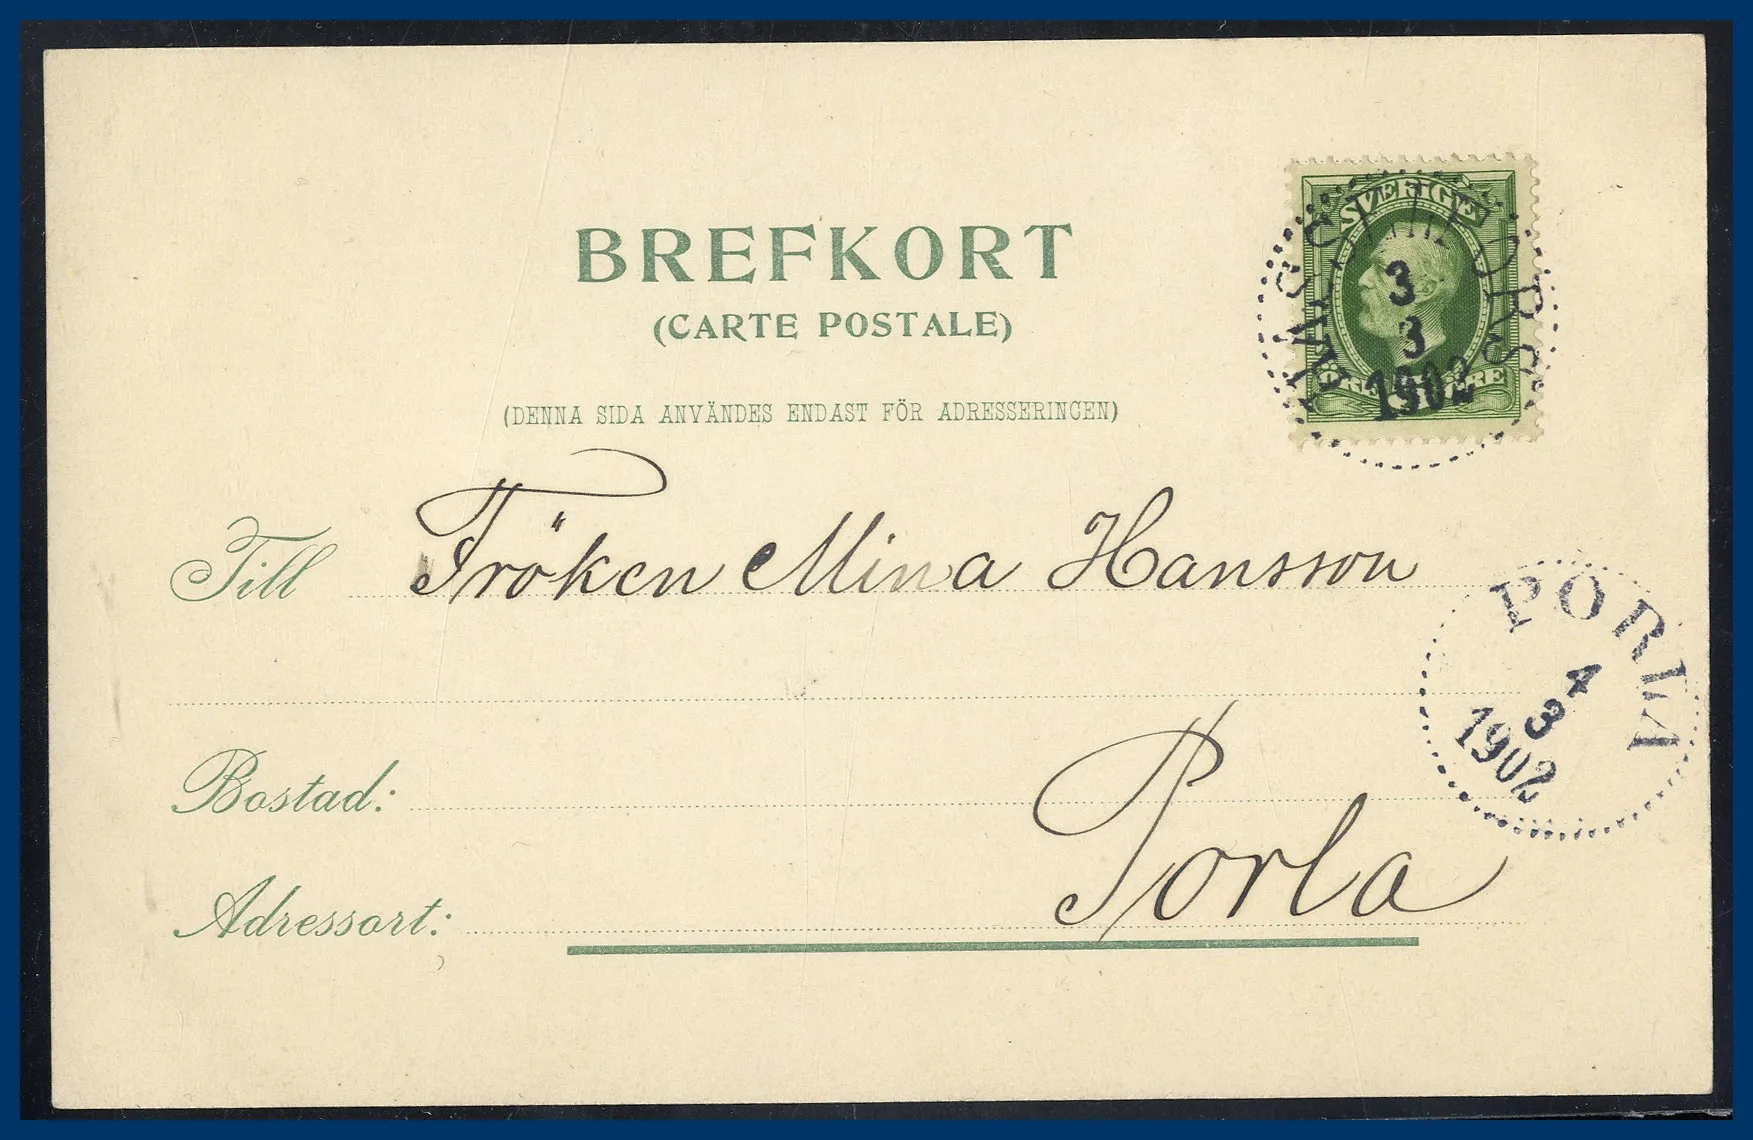 BREFKORT
(CARTE POSTALE)
(DENNA SIDA ANVÄNDES ENDAST FÖR ADRESSERINGEN)
SVERIGE
3
3
1902
Till Fröken Mina Hansson
PORLA
4
3
1902
Bostad:
Porla
Adressort: